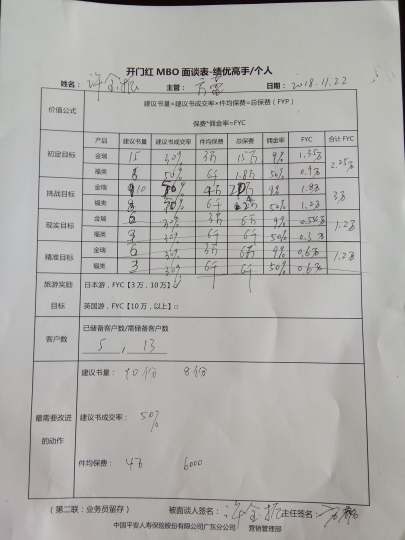 开门红 MBO 面谈表-绩优高手/个人
姓名： 许金振 主管： 日期： 2018.11.22
价值公式
建议书量×建议书成交率×件均保费=总保费（FYP）
保费*佣金率=FYC
产品 建议书量 建议书成交率 件均保费 总保费 佣金率 FYC 合计 FYC
初定目标 金瑞 15 30% 3万 15万 9% 1.35万 2.25万
福类 8 50% 6千 1.8万 50% 0.9万
挑战目标 金瑞 10 50% 4万 20万 9% 1.8万 3万
福类 8 70% 6千 50% 1.2万
现实目标 金瑞 6 30% 3万 6万 9% 0.54万 1.2万
福类 3 30% 6千 6千 50% 0.3万
精准目标 金瑞 6 30% 3万 6万 9% 0.6万 1.2万
福类 3 30% 6千 6千 50% 0.6万
旅游奖励目标
日本游，FYC【3 万，10 万】
英国游，FYC【10 万，以上】□
客户数
已储备客户数/需储备客户数
5 , 13
最需要改进的动作
建议书量： 10份 8份
建议书成交率： 50%
件均保费： 4万 6000
（第二联：业务员留存） 被面谈人签名： 许金振 主任签名：
中国平安人寿保险股份有限公司广东分公司 营销管理部